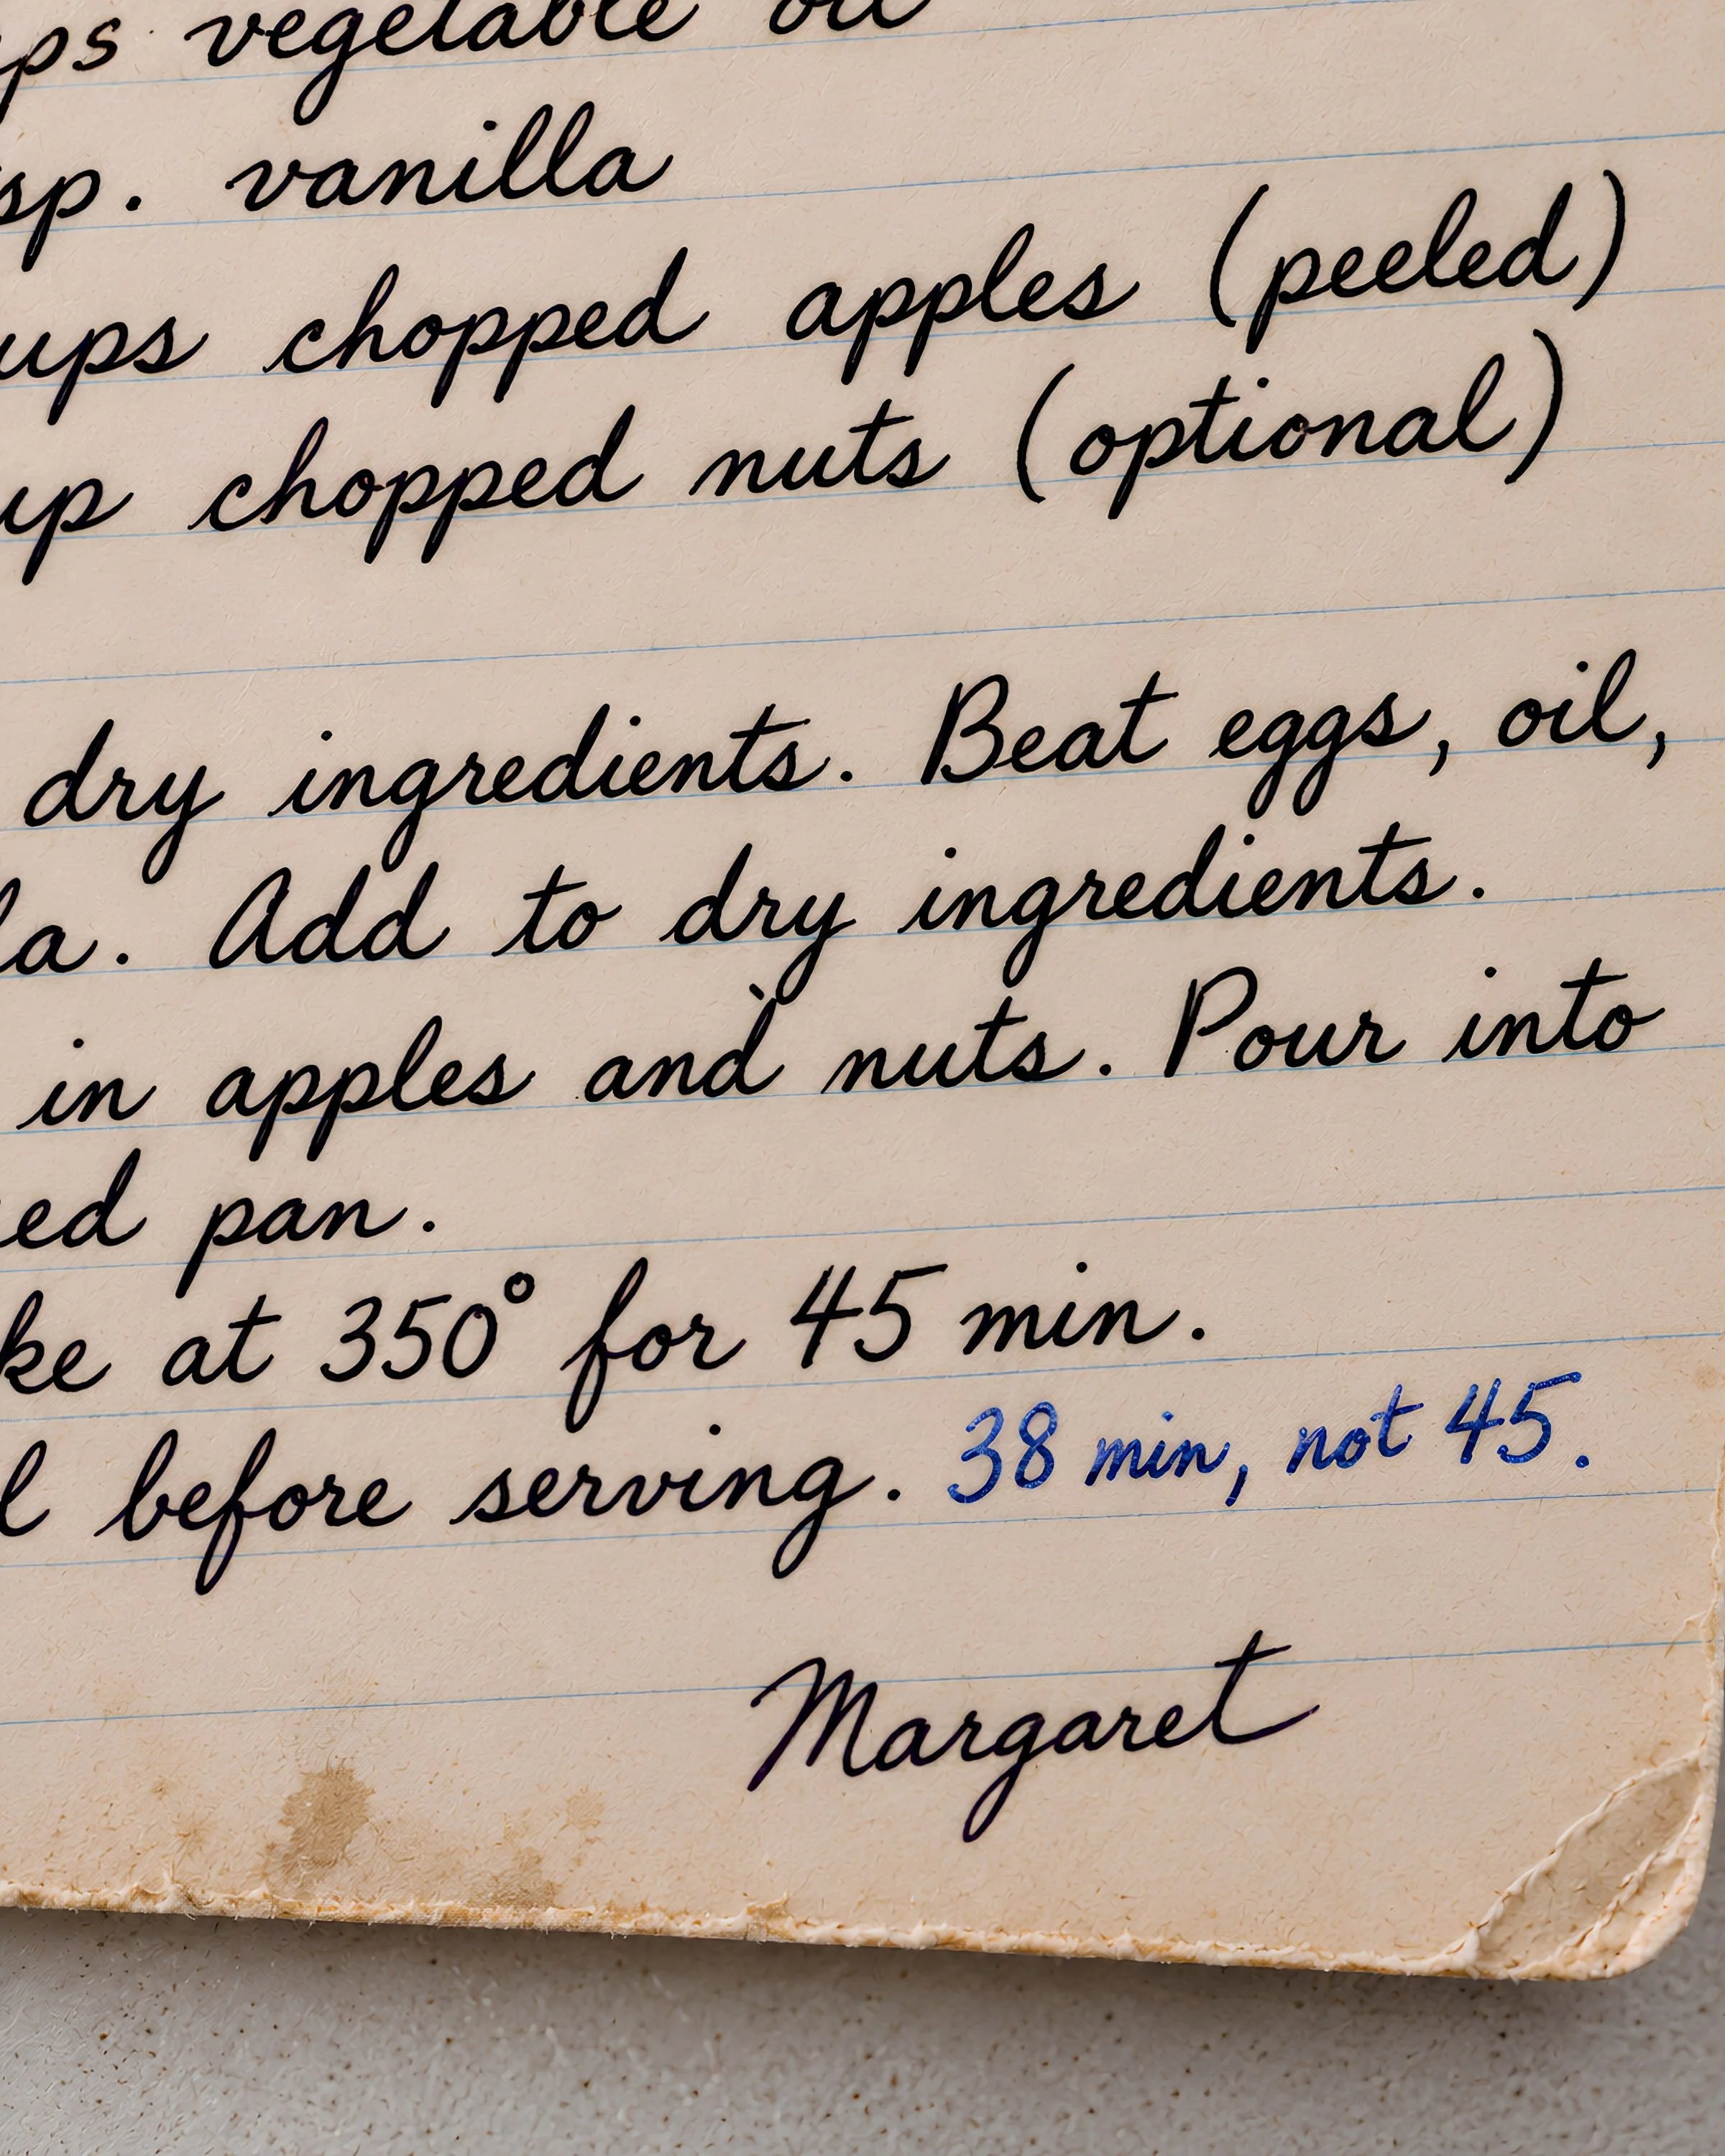 ps vegetable oil
sp. vanilla
ups chopped apples (peeled)
up chopped nuts (optional)
dry ingredients. Beat eggs, oil,
la. Add to dry ingredients.
in apples and nuts. Pour into
ed pan.
ke at 350° for 45 min.
l before serving. 38 min, not 45.
Margaret